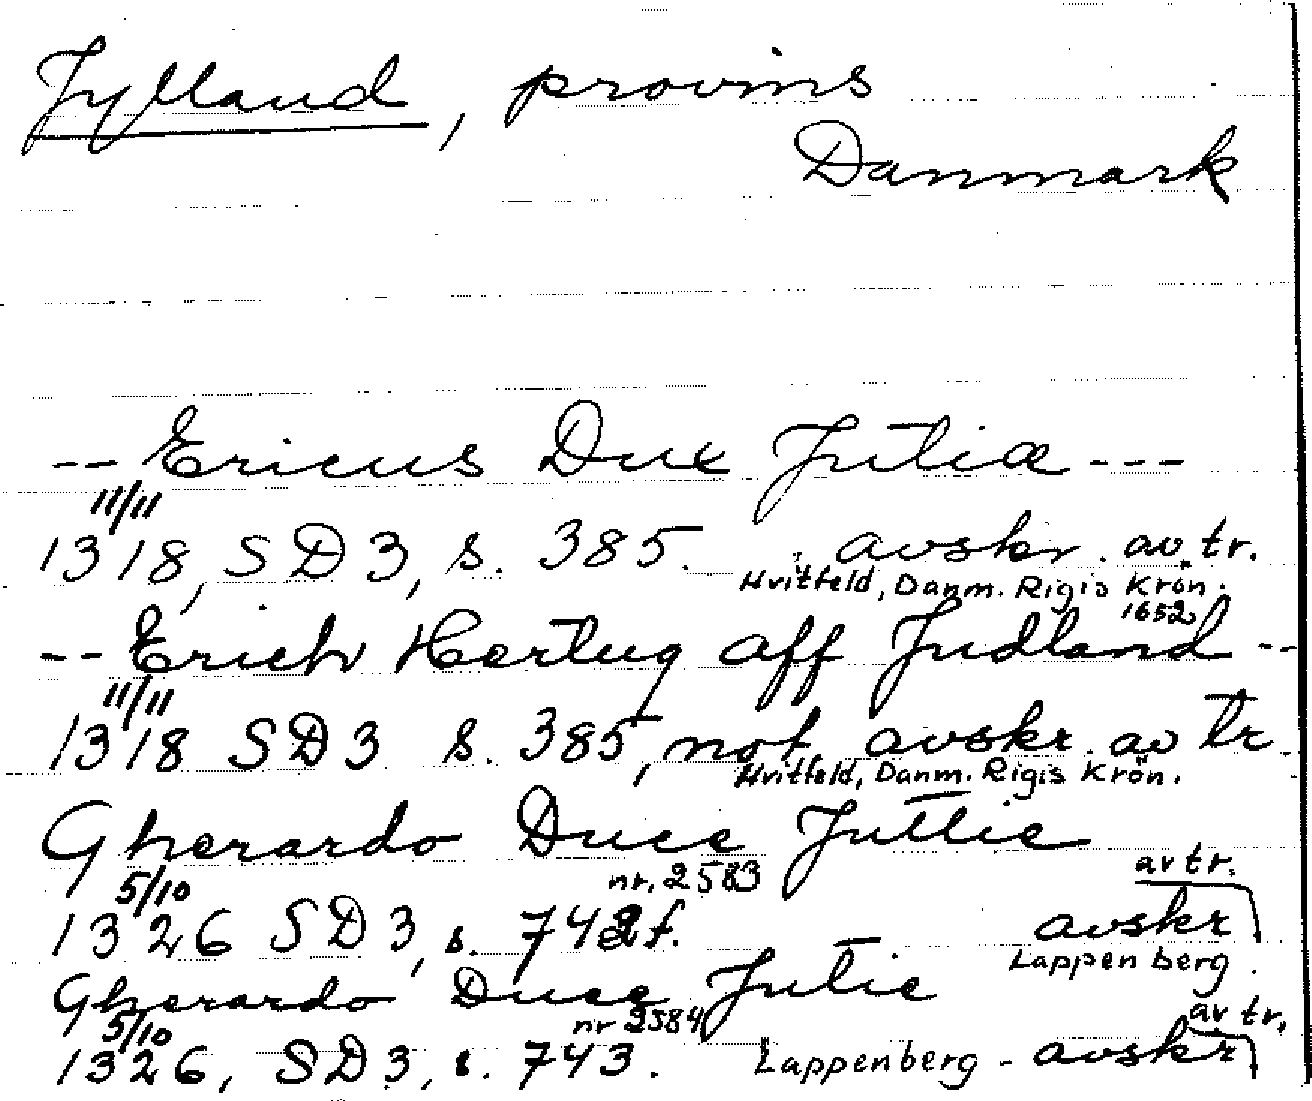 Jylland, provins
Danmark
-- Ericus Dux Jutiæ ---
11/11
1318, SD 3, s. 385. avskr. av tr.
Hvitfeld, Danm. Rigis Krön.
1652
-- Erich Hertug aff Judland --
11/11
1318 SD 3 s. 385, not. avskr. av tr.
Hvitfeld, Danm. Rigis Krön.
Gherardo Duce Juttie
5/10 nr. 2583 av tr.
1326 SD 3, s. 742 f. avskr
Lappenberg.
Gherardo Duce Jutie
5/10 nr 2584 av tr.
1326, SD 3, s. 743. Lappenberg - avskr